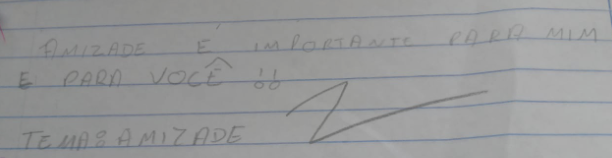 AMIZADE É IMPORTANTE PARA MIM
E PARA VOCÊ !!
TEMA: AMIZADE